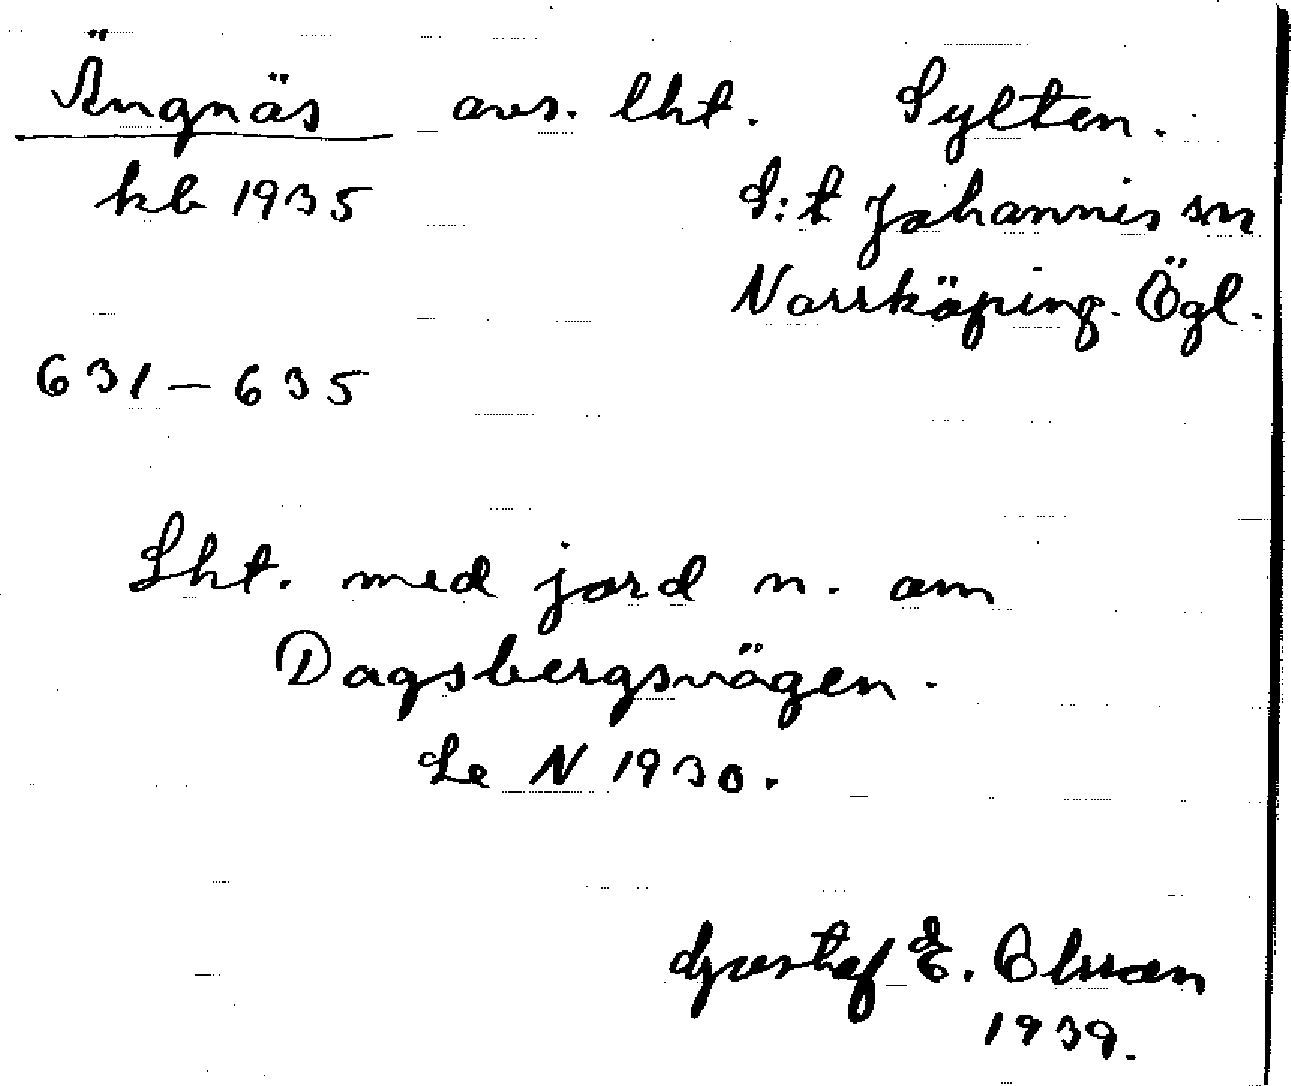 Ängnäs avs. lht. Sylten.
kb 1935 S:t Johannis sn
Norrköping. Ögl.
631-635
Lht. med jord n. om
Dagsbergsvägen.
Le N 1930.
Gustaf E. Olsson
1939.